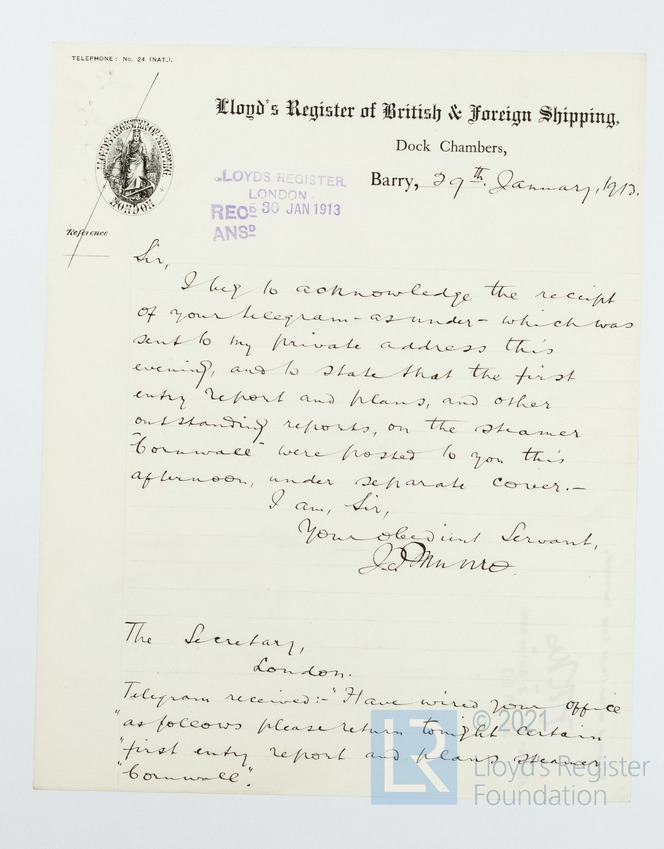 TELEPHONE: No. 24 (NAT.).
Lloyd's Register of British & Foreign Shipping,
Dock Chambers,
Barry, 29th January, 1913.
LLOYDS REGISTER.
LONDON
RECD 30 JAN 1913
ANSD
LLOYD'S REGISTER OF SHIPPING
LONDON
Reference
Sir,
I beg to acknowledge the receipt
of your telegram - as under - which was
sent to my private address this
evening, and to state that the first
entry report and plans, and other
outstanding reports, on the steamer
"Cornwall" were posted to you this
afternoon, under separate cover.-
I am, Sir,
Your obedient Servant,
Munro
The Secretary,
London.
Telegram received:- "Have wired your office
"as follows please return tonight certain
"first entry report and plans steamer
"Cornwall".
© 2021
LR
Lloyd's Register
Foundation